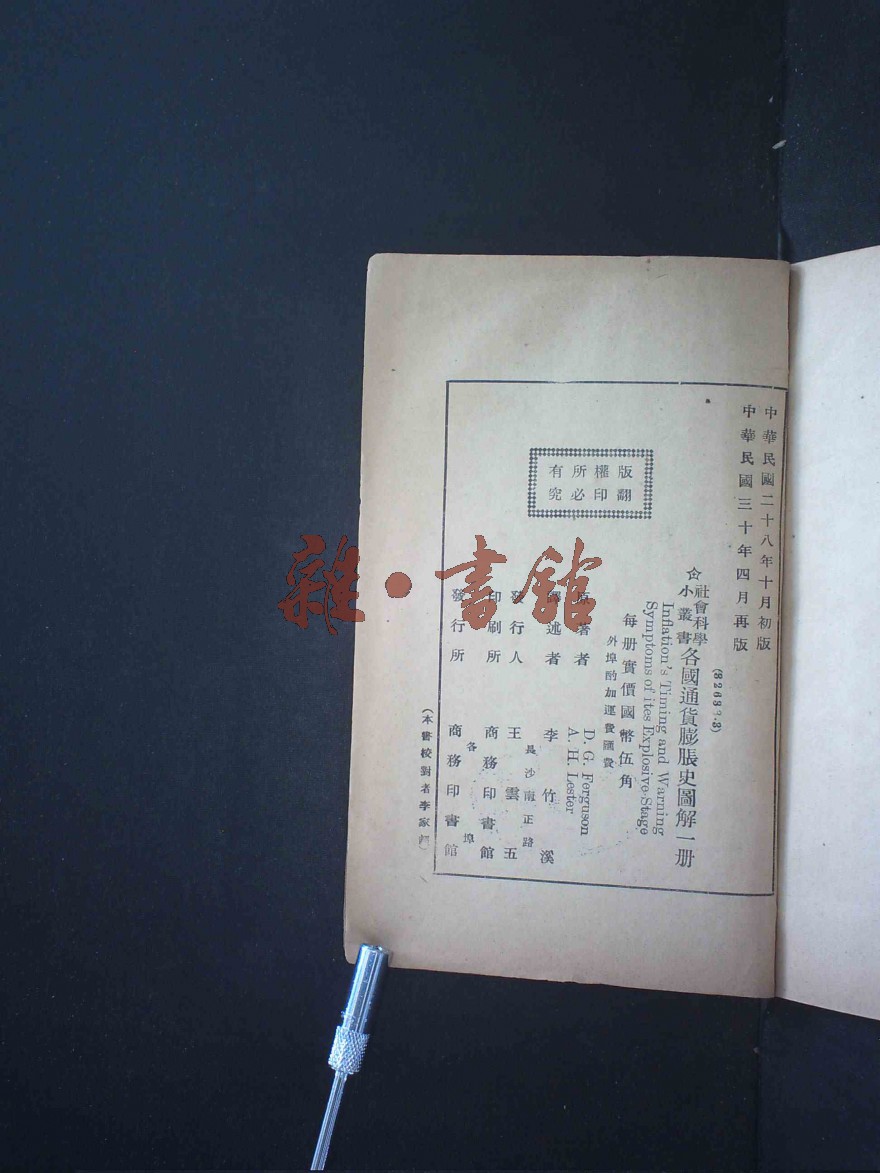 中華民國二十八年十月初版
中華民國三十年四月再版
版權所有
翻印必究
社會科學
小叢書
各國通貨膨脹史圖解一册
Inflation's Timing and Warning
Symptoms of ites Explosive Stage
每册實價國幣伍角
外埠酌加運費匯費
原著者
D. G. Ferguson
A. H. Lester
譯述者 李竹溪
發行人 王雲五
長沙南正路
印刷所 商務印書館
發行所 商務印書館
各埠
(本書校對者李家
雜·書館